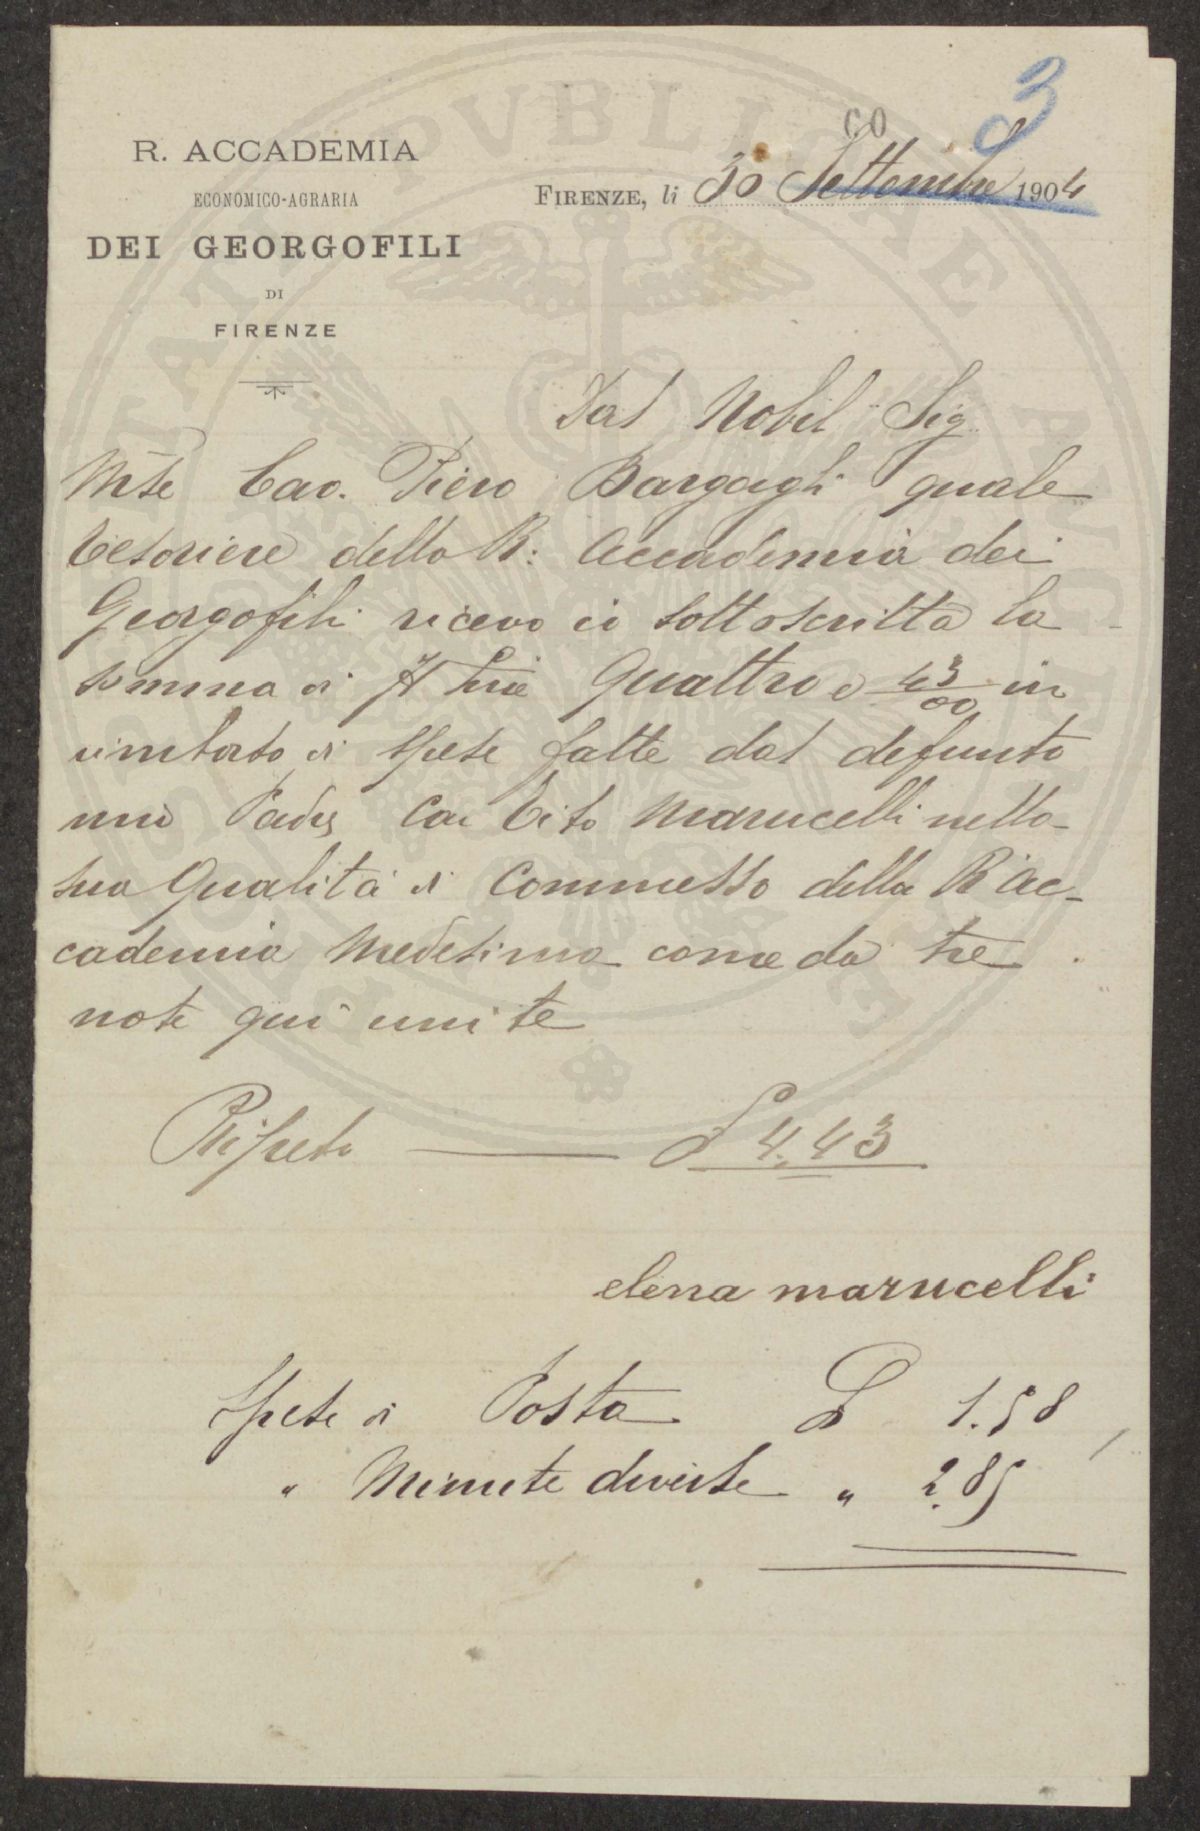 3
co
R. ACCADEMIA
ECONOMICO-AGRARIA
DEI GEORGOFILI
DI
FIRENZE
FIRENZE, li 30 Settembre 1904
Dal Nobil Sig
Mse Cav. Piero Bargagli quale
tesoriere della R: Accademia dei
Georgofili ricevo io sottoscritta la
somma di Lire Quattro e 43/00 in
rimborso di Spese fatte dal defunto
mio Padre Tito Marucelli nella
sua Qualità di Commesso della R Ac-
cademia Medesima come da tre
note qui unite
Ripeto L 4.43
elena marucelli
Spese di Posta L 1.58
" Minute diverse " 2.85